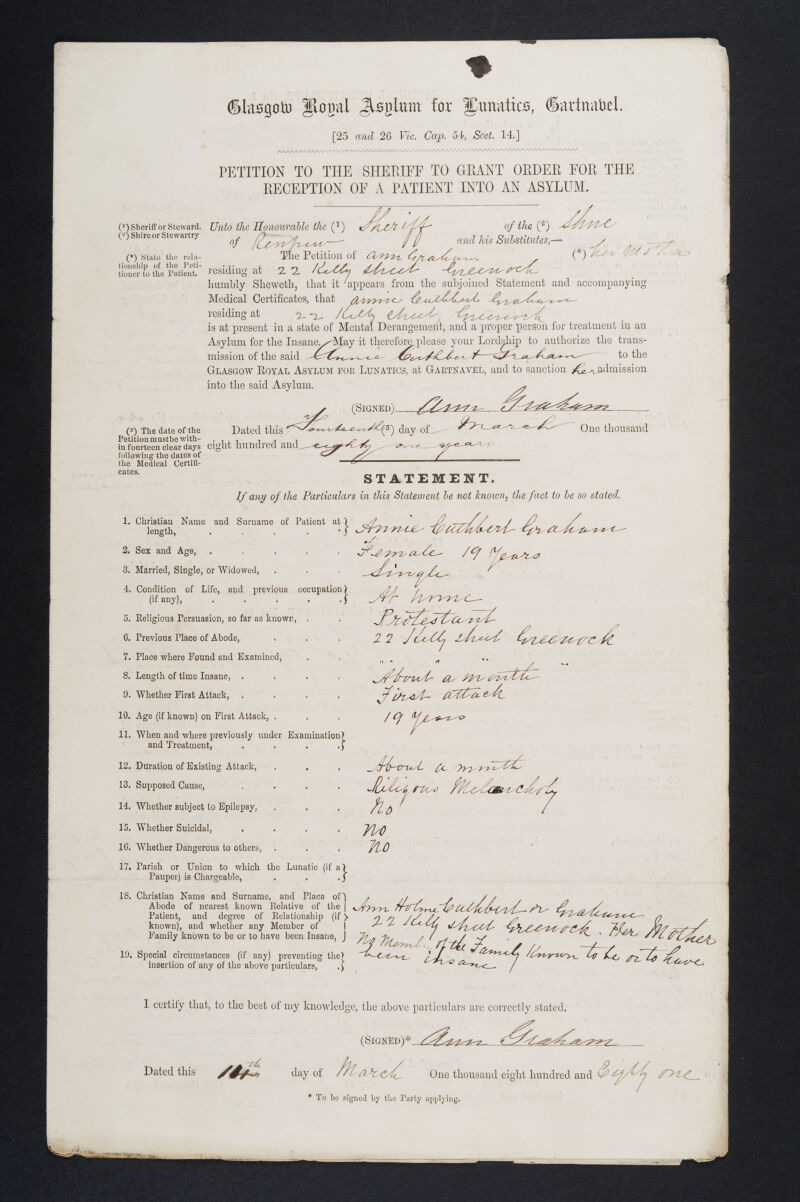 Glasgow Royal Asylum for Lunatics, Gartnavel.
[25 and 26 Vic. Cap. 54, Sect. 14.]
PETITION TO THE SHERIFF TO GRANT ORDER FOR THE
RECEPTION OF A PATIENT INTO AN ASYLUM.
(1) Sheriff or Steward.
(2) Shire or Stewartry
Unto the Honourable the (1) Sheriff of the (2) Shire
of Renfrew and his Substitutes,—
(*) State the rela-
tionship of the Peti-
tioner to the Patient.
The Petition of Ann Graham (*) her Mother
residing at 22 Kelly Street Greenock
humbly Sheweth, that it appears from the subjoined Statement and accompanying
Medical Certificates, that Annie Cuthbert Graham
residing at 22 Kelly Street, Greenock
is at present in a state of Mental Derangement, and a proper person for treatment in an
Asylum for the Insane. May it therefore please your Lordship to authorize the trans-
mission of the said Annie Cuthbert Graham to the
GLASGOW ROYAL ASYLUM FOR LUNATICS, at GARTNAVEL, and to sanction her admission
into the said Asylum.
(SIGNED) Ann Graham
(3) The date of the
Petition must be with-
in fourteen clear days
following the dates of
the Medical Certifi-
cates.
Dated this Fourteenth (3) day of March One thousand
eight hundred and eighty one years
STATEMENT.
If any of the Particulars in this Statement be not known, the fact to be so stated.
1. Christian Name and Surname of Patient at
length, Annie Cuthbert Graham
2. Sex and Age, Female 19 Years
3. Married, Single, or Widowed, Single
4. Condition of Life, and previous occupation
(if any), At home
5. Religious Persuasion, so far as known, Protestant
6. Previous Place of Abode, 22 Kelly Street Greenock
7. Place where Found and Examined, " " " "
8. Length of time Insane, About a month
9. Whether First Attack, First attack
10. Age (if known) on First Attack, 19 Years
11. When and where previously under Examination
and Treatment,
12. Duration of Existing Attack, About a month
13. Supposed Cause, Riligous Melancholy
14. Whether subject to Epilepsy, No
15. Whether Suicidal, No
16. Whether Dangerous to others, No
17. Parish or Union to which the Lunatic (if a
Pauper) is Chargeable,
18. Christian Name and Surname, and Place of
Abode of nearest known Relative of the
Patient, and degree of Relationship (if
known), and whether any Member of
Family known to be or to have been Insane,
Ann Holme Cuthbert or Graham
22 Kelly Street Greenock. Her Mother
No Member of the Family Known to be or to have
been insane
19. Special circumstances (if any) preventing the
insertion of any of the above particulars,
I certify that, to the best of my knowledge, the above particulars are correctly stated.
(SIGNED)* Ann Graham
Dated this 14th day of March One thousand eight hundred and Eighty one
* To be signed by the Party applying.